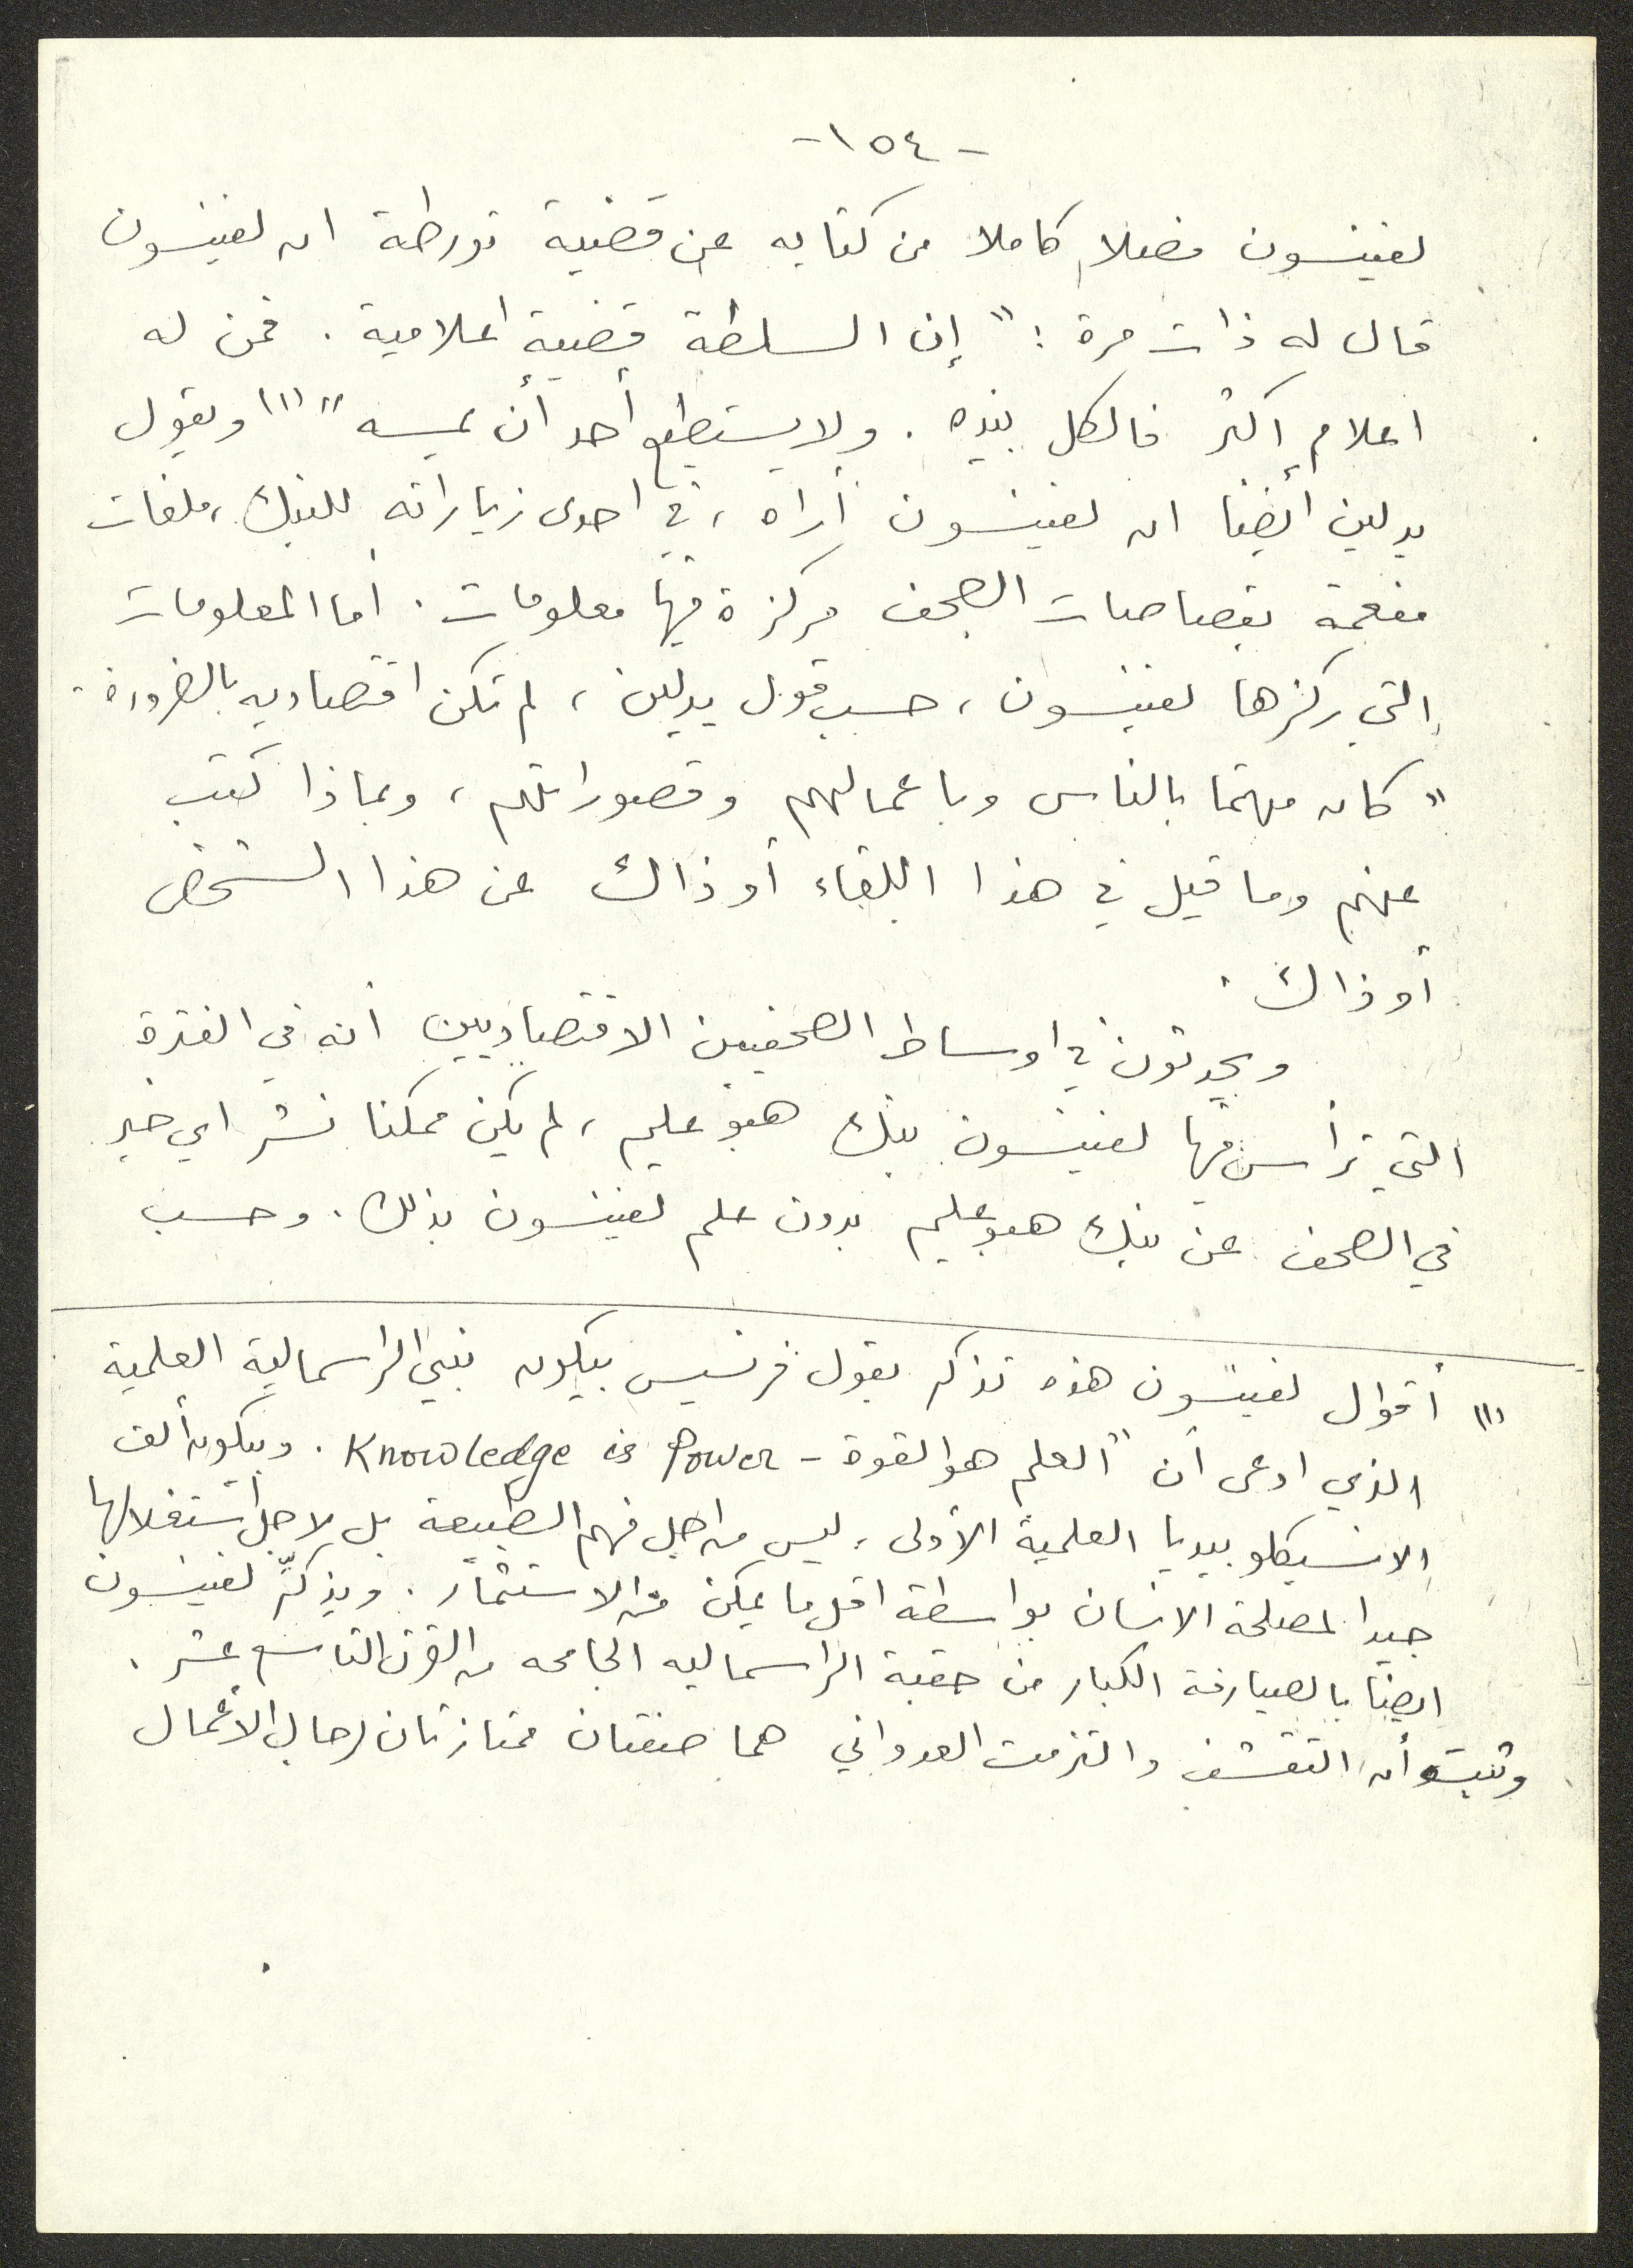 -١٥٤-
لفينسون فصلا كاملا من كتابه عن قضية تورطة ان لفينسون
قال له ذات مرة : " إن السلطة قضية اعلامية . فمن له
اعلام أكثر فالكل بيده . ولا يستطيع أحد أن يمسه " (١) ويقول
يدلين أيضا ان لفينسون أراه ، في احدى زياراته للبنك ، ملفات
مفعمة بقصاصات الصحف مركزة فيها معلومات . أما المعلومات
التي ركزها لفينسون ، حسب قول يدلين ، لم تكن اقتصاديه بالضرورة .
" كان مهتما بالناس وباعمالهم وقصوراتهم ، وبماذا كتب
عنهم وما قيل في هذا اللقاء أو ذاك عن هذا الشخص
أو ذاك .
ويحدثون في اوساط الصحفيين الاقتصاديين أنه في الفترة
التي ترأس فيها لفينسون بنك هبوعليم ، لم يكن ممكنا نشر اي خبر
في الصحف عن بنك هبوعليم بدون علم لفينسون بذلك . وحسب
(١) أقوال لفينسون هذه تذكر بقول فرنسيس بيكون نبي الراسمالية العلمية
الذي ادعى أن " العلم هو القوة - Knowledge is Power . وبيكون ألف
الانسيكلوبيديا العلمية الأولى ، ليس من اجل فهم الطبيعة بل لاجل استغلالها
جيدا لمصلحة الانسان بواسطة اقل ما يمكن من الاستثمار . ويذكّر لفينسون
ايضا بالصيارفة الكبار من حقبة الراسماليه الجامحه من القرن التاسع عشر .
وثبت أن التقشف والتزمت العدواني هما صفتان ممتازتان لرجال الأعمال